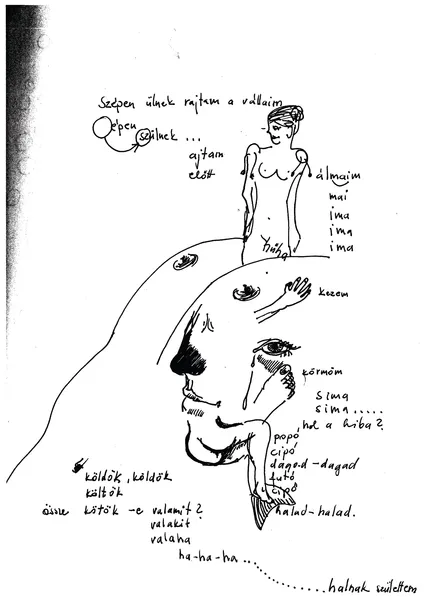 Szépen ülnek rajtam a vállaim
épen
szülnek ...
ajtam
előtt
álmaim
mai
ima
ima
ima
húha
kezem
körmöm
sima
sima.....
hol a hiba?
popó
cipő
dagad-dagad
futó
cipő
halad-halad.
köldök, köldök
költők
össze kötök -e valamit?
valakit
valaha
ha-ha-ha
halnak születtem